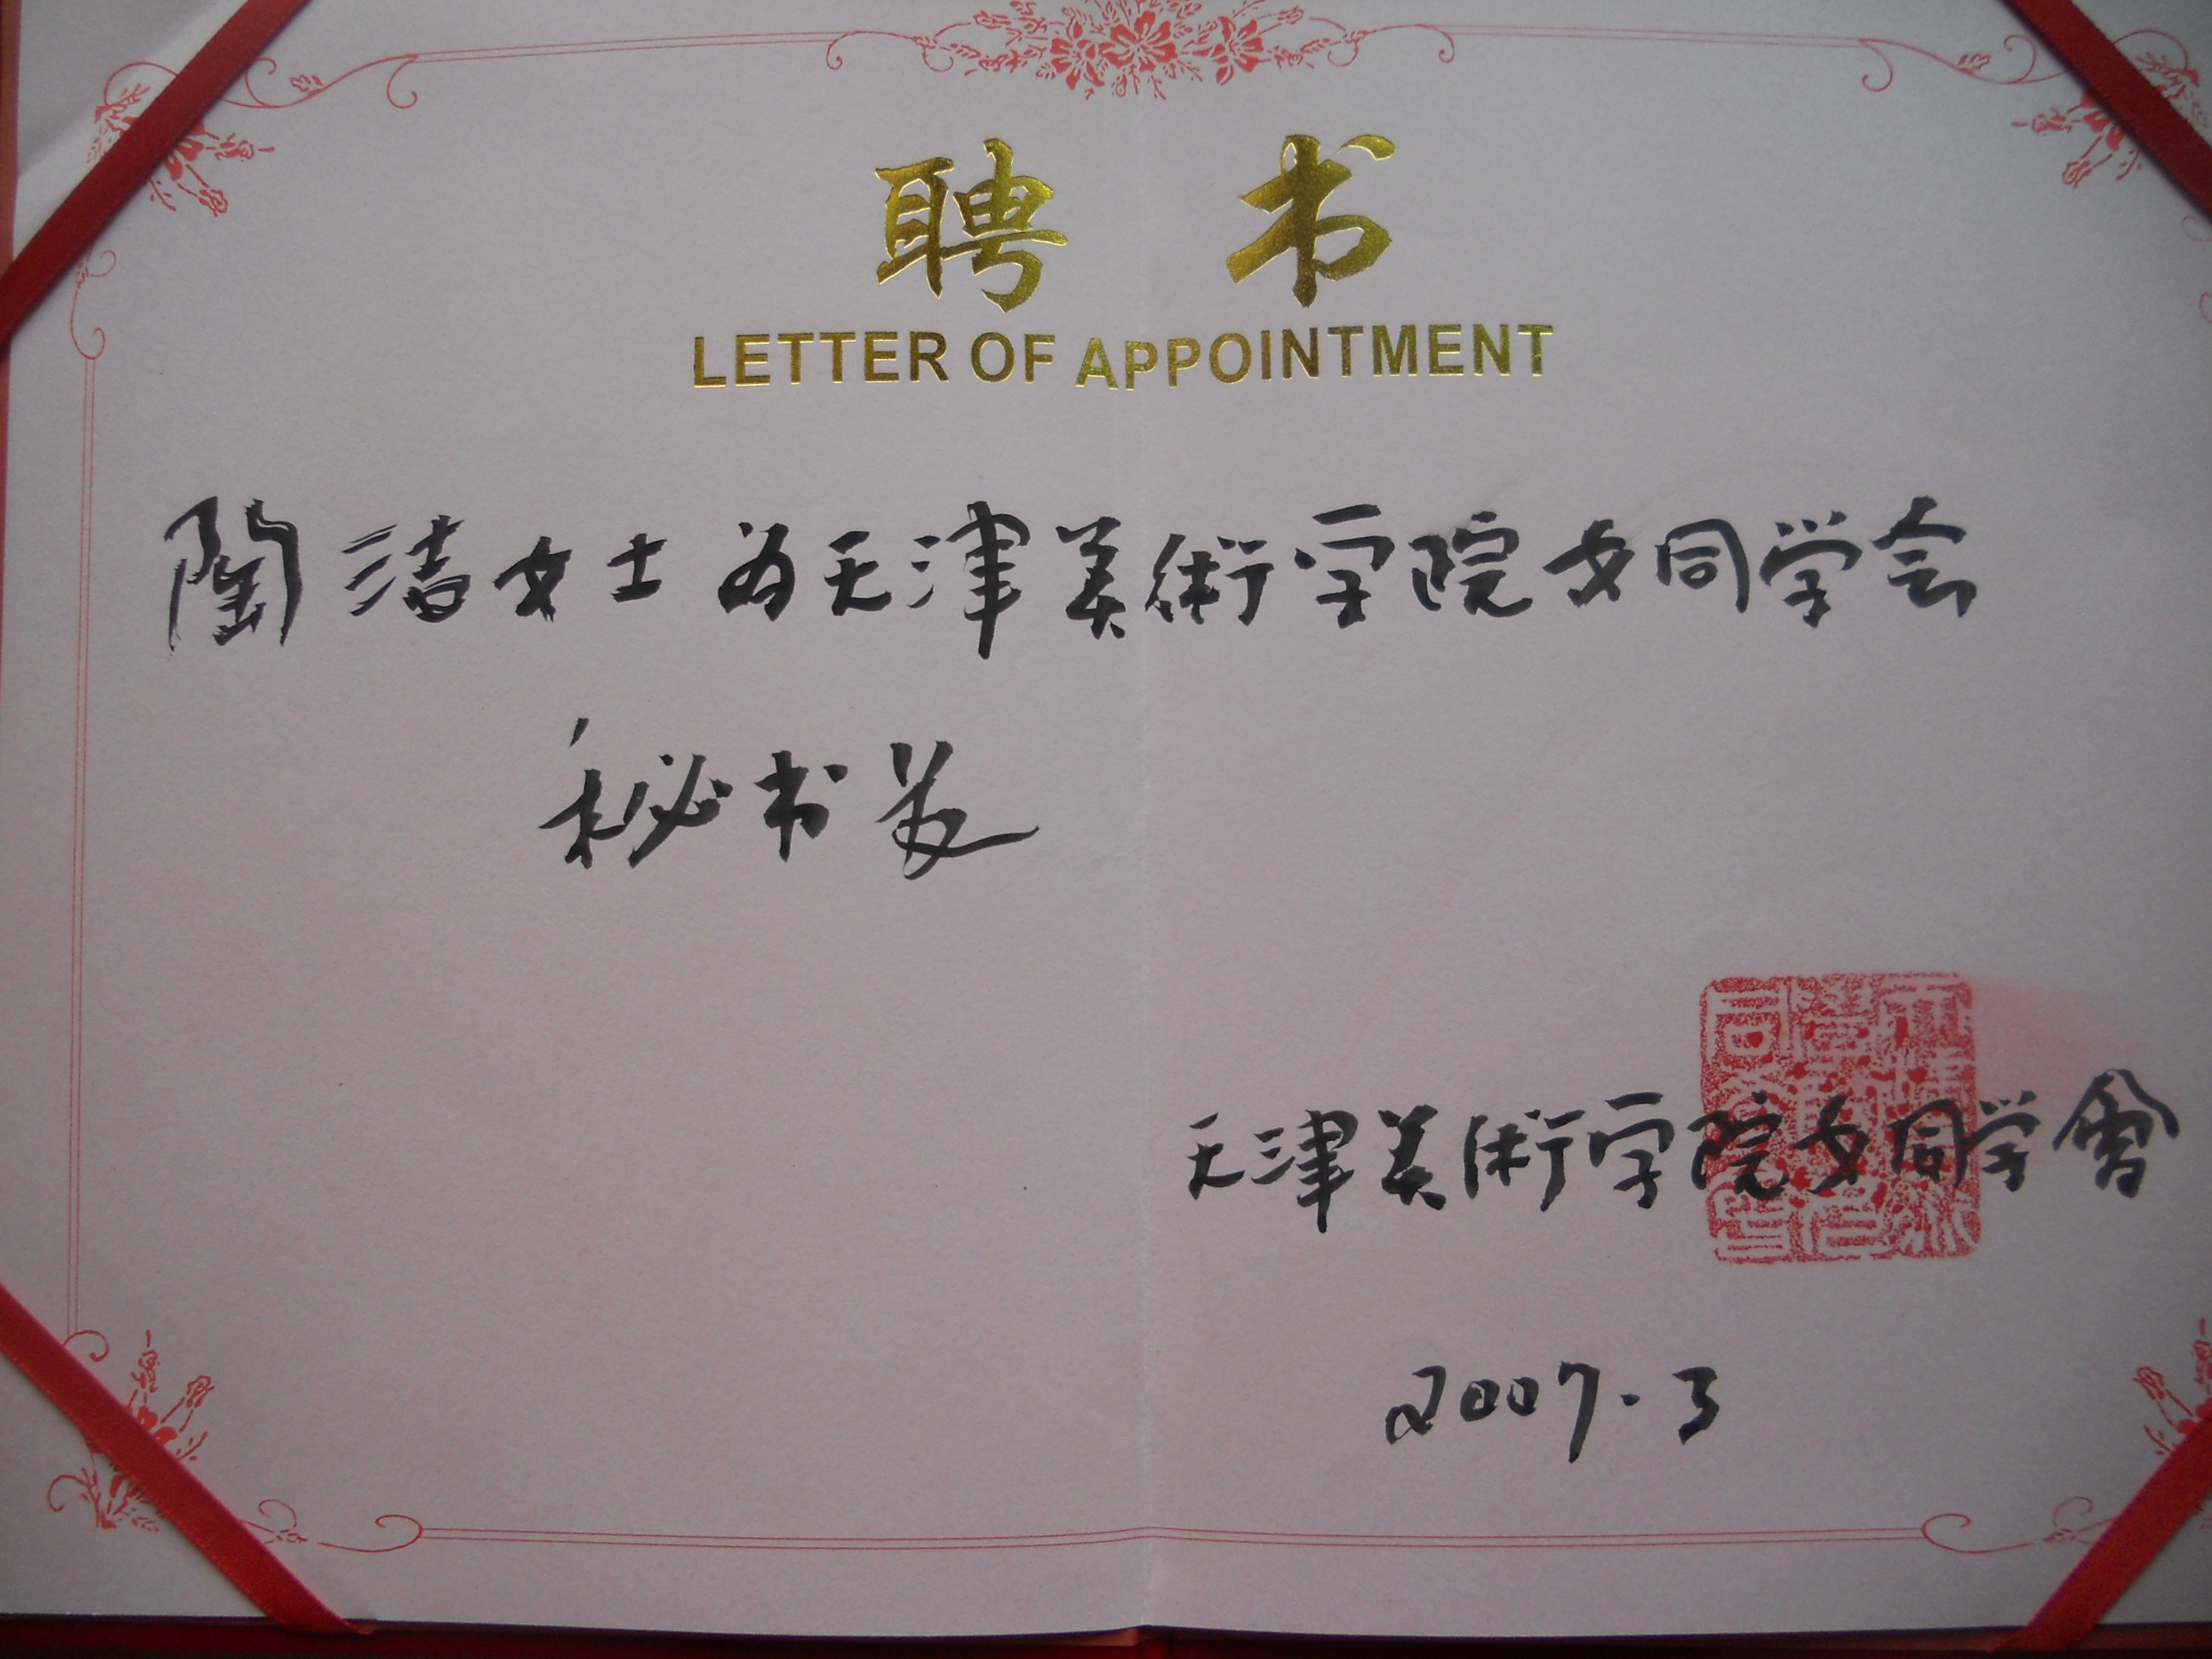 聘书
LETTER OF APPOINTMENT
陶洁女士为天津美術学院女同学会
秘书长
天津美術学院女同学會
2007.3